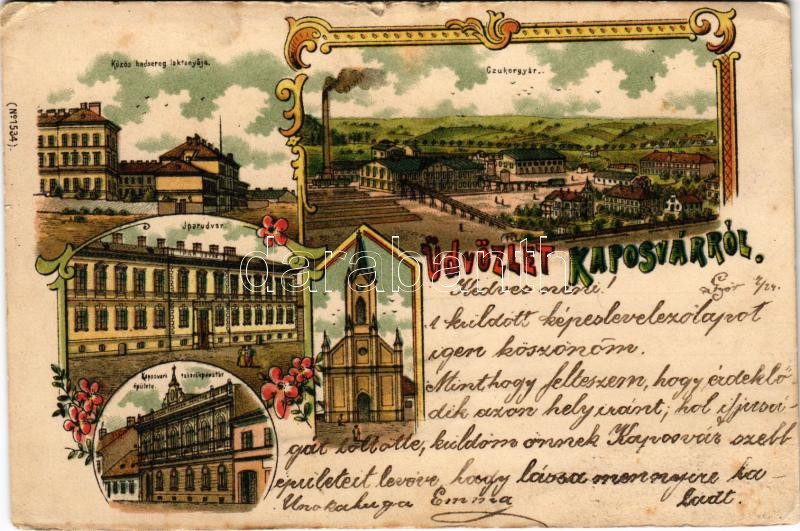 Közös hadsereg laktanyája.
Czukorgyár.
(No 1534).
Iparudvar.
ÜDVÖZLET KAPOSVÁRRÓL.
Kaposvári takarékpénztár
épülete.
darabanth
Kedves néni!
2/24
A küldött képeslevelezőlapot
igen köszönöm.
Minthogy felteszem, hogy érdeklő-
dik azon hely iránt; hol ifjusá-
gát töltötte, küldöm önnek Kaposvár szebb
épületeit levéve, hogy lássa mennyire ha-
ladt.
Unokahuga Emma